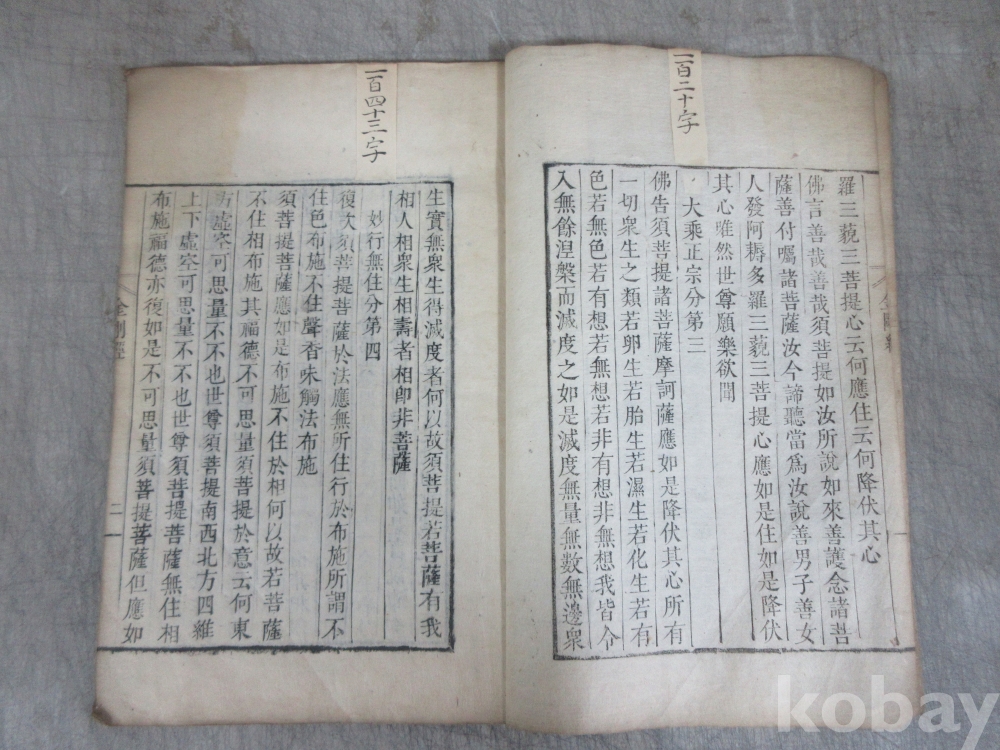 一百二十字
羅三藐三菩提心云何應住云何降伏其心
佛言善哉善哉須菩提如汝所說如來善護念諸菩
薩善付囑諸菩薩汝今諦聽當爲汝說善男子善女
人發阿耨多羅三藐三菩提心應如是住如是降伏
其心唯然世尊願樂欲聞
大乘正宗分第三
佛告須菩提諸菩薩摩訶薩應如是降伏其心所有
一切衆生之類若卵生若胎生若濕生若化生若有
色若無色若有想若無想若非有想非無想我皆令
入無餘涅槃而滅度之如是滅度無量無數無邊衆
一百四十三字
生實無衆生得滅度者何以故須菩提若菩薩有我
相人相衆生相壽者相卽非菩薩
妙行無住分第四
復次須菩提菩薩於法應無所住行於布施所謂不
住色布施不住聲香味觸法布施
須菩提菩薩應如是布施不住於相何以故若菩薩
不住相布施其福德不可思量須菩提於意云何東
方虛空可思量不不也世尊須菩提南西北方四維
上下虛空可思量不不也世尊須菩提菩薩無住相
布施福德亦復如是不可思量須菩提菩薩但應如
金剛經
二
kobay